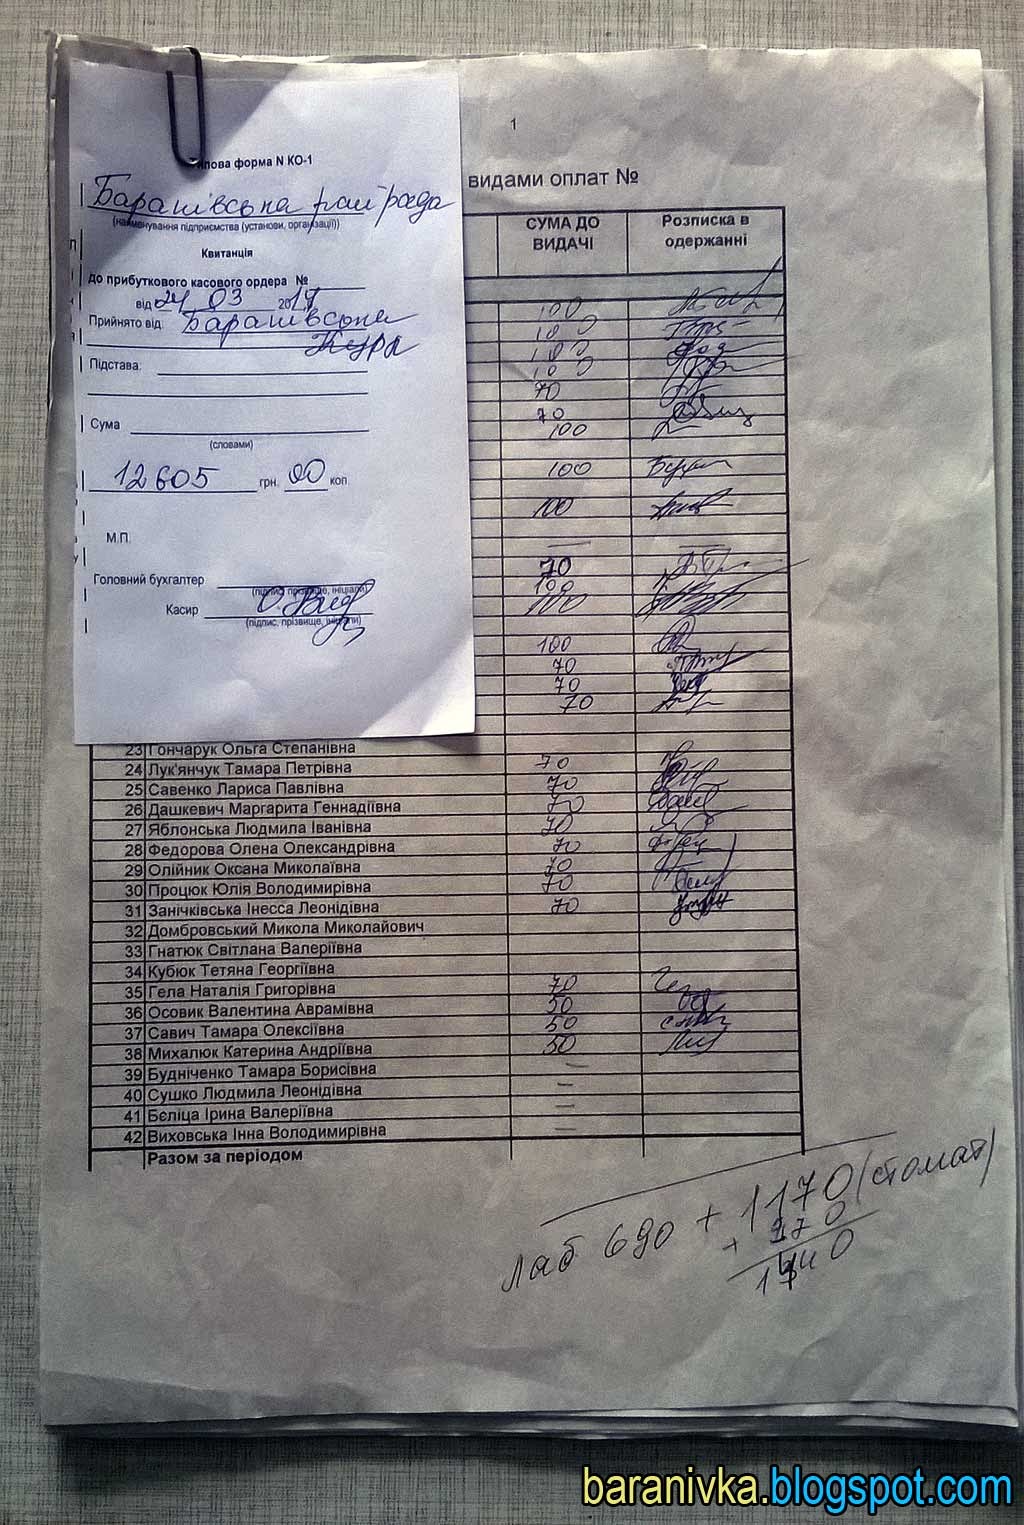 1
повa форма N КО-1
видами оплат №
Баранівська райрада
(найменування підприємства (установи, організації))
СУМА ДО ВИДАЧІ
Розписка в одержанні
Квитанція
до прибуткового касового ордера №
від 24 03 2017
Прийнято від: Баранівська
Підстава:
Сума
(словами)
12605 грн. 00 коп.
М.П.
Головний бухгалтер
(підпис, прізвище, ініціали)
Касир
(підпис, прізвище, ініціали)
100
100
100
100
70
70
100
100
100
—
70
100
100
100
70
70
70
23 Гончарук Ольга Степанівна
24 Лук'янчук Тамара Петрівна 70
25 Савенко Лариса Павлівна 70
26 Дашкевич Маргарита Геннадіївна 70
27 Яблонська Людмила Іванівна 70
28 Федорова Олена Олександрівна 70
29 Олійник Оксана Миколаївна 70
30 Процюк Юлія Володимирівна 70
31 Занічківська Інесса Леонідівна 70
32 Домбровський Микола Миколайович
33 Гнатюк Світлана Валеріївна
34 Кубюк Тетяна Георгіївна
35 Гела Наталія Григорівна 70
36 Осовик Валентина Аврамівна 50
37 Савич Тамара Олексіївна 50
38 Михалюк Катерина Андріївна 50
39 Будніченко Тамара Борисівна —
40 Сушко Людмила Леонідівна —
41 Бєліца Ірина Валеріївна —
42 Виховська Інна Володимирівна —
Разом за періодом
лаб 690 + 1170 (стомат)
+ 270
1440
baranivka.blogspot.com